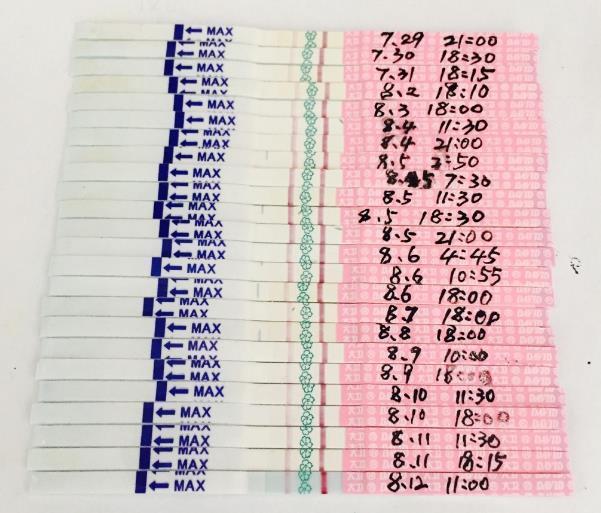 MAX 7.29 21:00
MAX 7.30 18:30
MAX 7.31 18:15
MAX 8.2 18:10
MAX 8.3 18:00
MAX 8.4 11:30
MAX 8.4 21:00
MAX 8.5 2:50
MAX 8.5 7:30
MAX 8.5 11:30
MAX 8.5 18:30
MAX 8.5 21:00
MAX 8.6 4:45
MAX 8.6 10:55
MAX 8.6 18:00
MAX 8.7 18:00
MAX 8.8 18:00
MAX 8.9 10:00
MAX 8.9 18:00
MAX 8.10 11:30
MAX 8.10 18:00
MAX 8.11 11:30
MAX 8.11 18:15
MAX 8.12 11:00